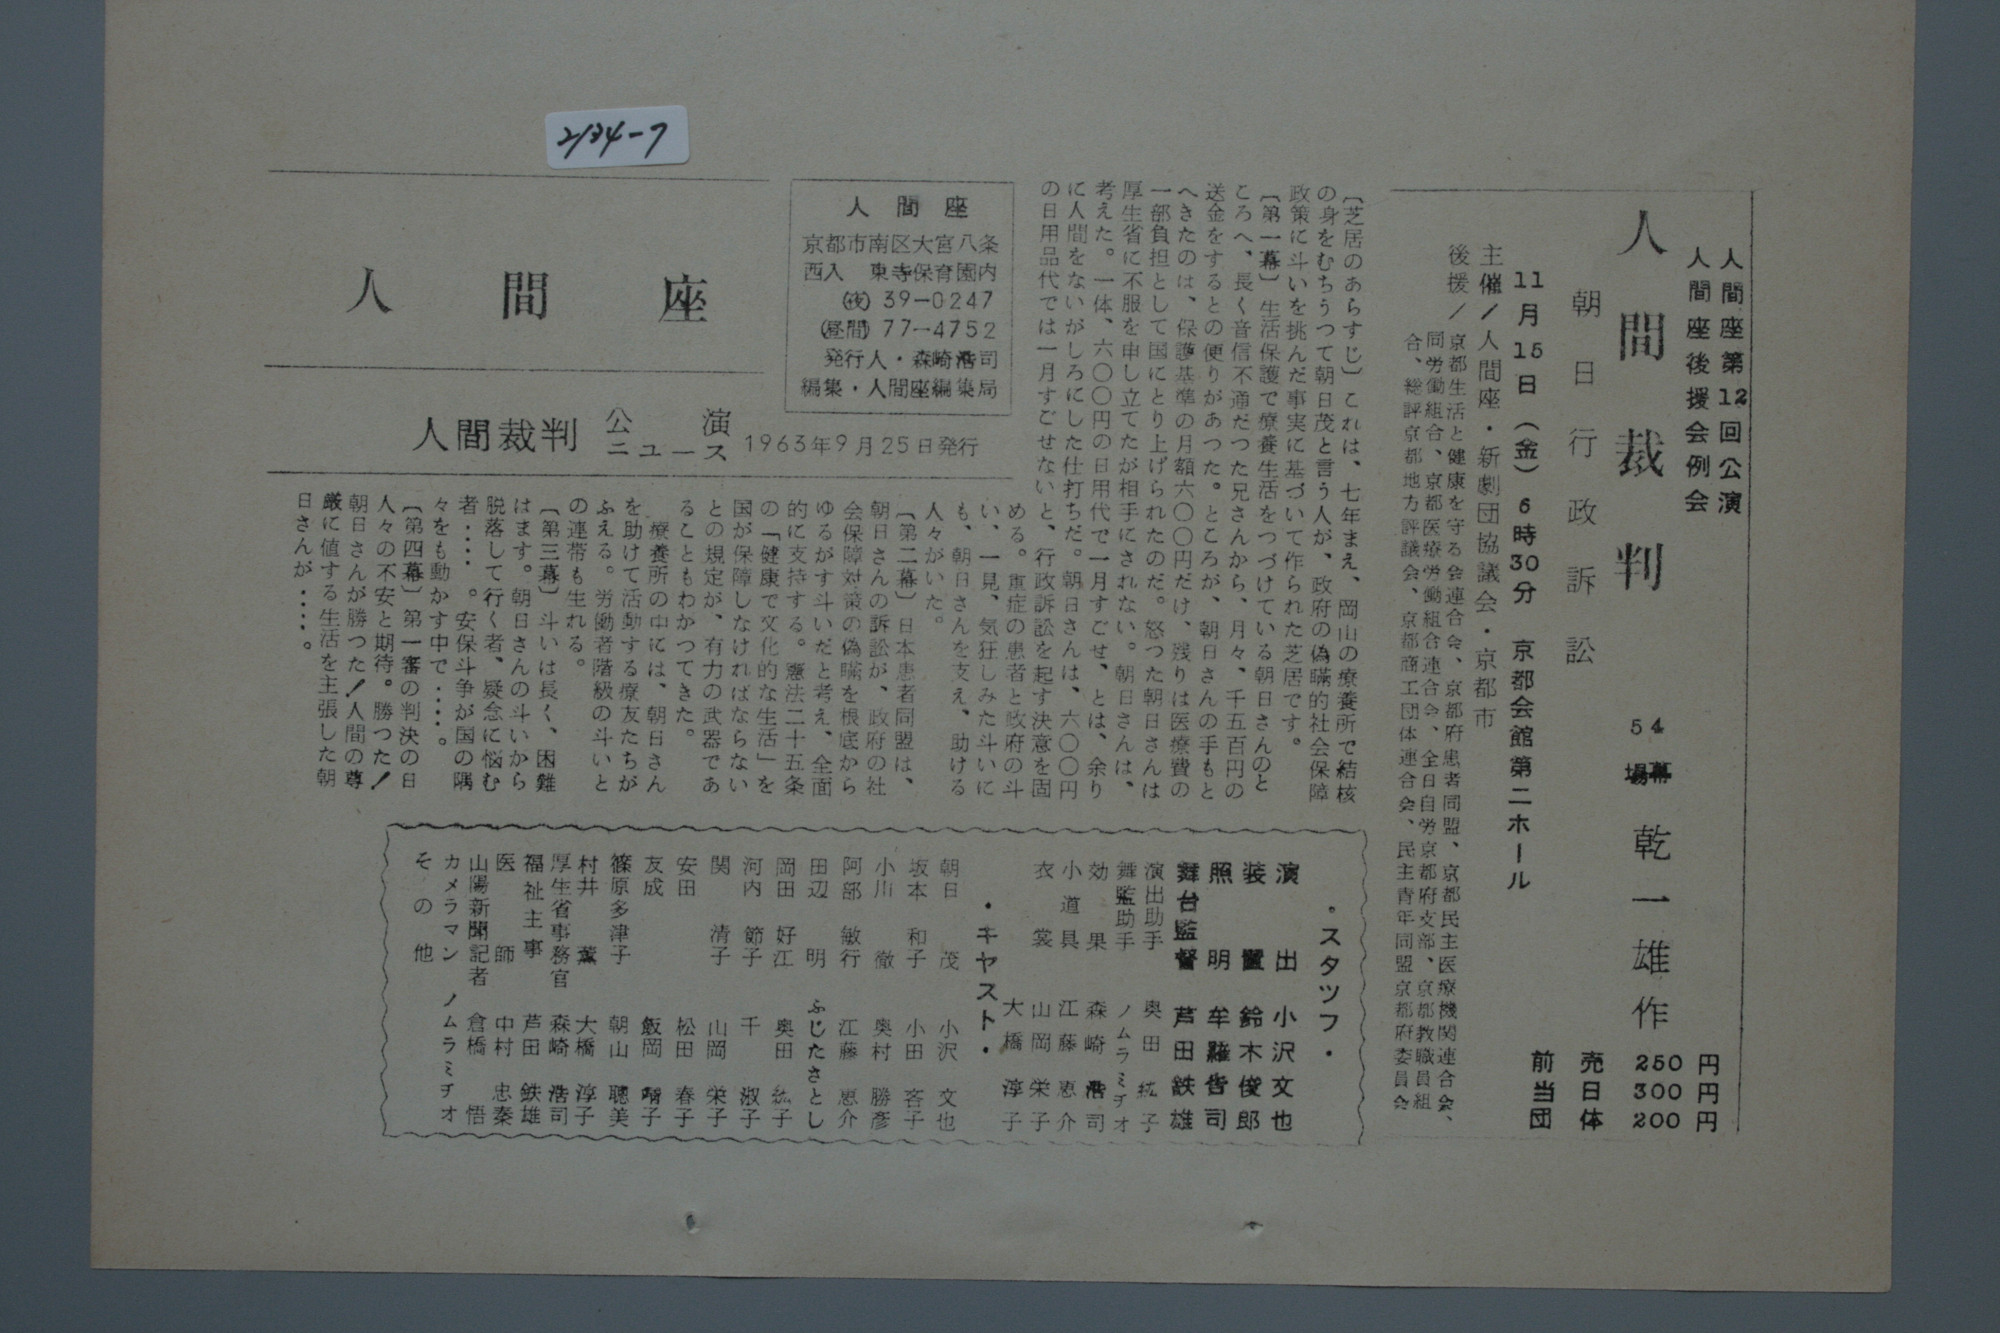 2134-7
人間座第12回公演
人間座後援会例会
人間裁判
4幕
5場
乾一雄作
朝日行政訴訟
11月15日（金）6時30分 京都会館第二ホール
主催/人間座・新劇団協議会・京都市
後援/京都生活と健康を守る会連合会、京都府患者同盟、京都民主医療機関連合会、
同労働組合、京都医療労働組合連合会、全日自労京都府支部、京都教職員組
合、総評京都地方評議会、京都商工団体連合会、民主青年同盟京都府委員会
前売 250円
当日 300円
団体 200円
〔芝居のあらすじ〕これは、七年まえ、岡山の療養所で結核
の身をむちうつて朝日茂と言う人が、政府の偽瞞的社会保障
政策に斗いを挑んだ事実に基づいて作られた芝居です。
〔第一幕〕生活保護で療養生活をつづけている朝日さんのと
ころへ、長く音信不通だつた兄さんから、月々、千五百円の
送金をするとの便りがあつた。ところが、朝日さんの手もと
へきたのは、保護基準の月額六〇〇円だけ、残りは医療費の
一部負担として国にとり上げられたのだ。怒つた朝日さんは
厚生省に不服を申し立てたが相手にされない。朝日さんは、
考えた。一体、六〇〇円の日用代で一月すごせ、とは、余り
に人間をないがしろにした仕打ちだ。朝日さんは、六〇〇円
の日用品代では一月すごせないと、行政訴訟を起す決意を固
める。重症の患者と政府の斗
い、一見、気狂じみた斗いに
も、朝日さんを支え、助ける
人々がいた。
〔第二幕〕日本患者同盟は、
朝日さんの訴訟が、政府の社
会保障対策の偽瞞を根底から
ゆるがす斗いだと考え、全面
的に支持する。憲法二十五条
の「健康で文化的な生活」を
国が保障しなければならない
との規定が、有力の武器であ
ることもわかつてきた。
療養所の中には、朝日さん
を助けて活動する療友たちが
ふえる。労働者階級の斗いと
の連帯も生れる。
〔第三幕〕斗いは長く、困難
はます。朝日さんの斗いから
脱落して行く者、疑念に悩む
者・・・・。安保斗争が国の隅
々をも動かす中で・・・・。
〔第四幕〕第一審の判決の日
人々の不安と期待。勝つた！
朝日さんが勝つた！人間の尊
厳に値する生活を主張した朝
日さんが・・・・。
人間座
京都市南区大宮八条
西入 東寺保育園内
(夜) 39-0247
(昼間) 77-4752
発行人・森崎浩司
編集・人間座編集局
人間座
人間裁判 公演ニュース 1963年9月25日発行
・スタツフ・
演出 小沢文也
装置 鈴木俊郎
照明 牟羅哲司
舞台監督 芦田鉄雄
演出助手 奥田紘子
舞監助手 ノムラミチオ
効果 森崎浩司
小道具 江藤恵介
衣裳 山岡栄子
大橋淳子
・キヤスト・
朝日茂 小沢文也
坂本和子 小田容子
小川徹 奥村勝彦
阿部敏行 江藤恵介
田辺明 ふじたさとし
岡田好江 奥田紘子
河内節子 千淑子
関清子 山岡栄子
安田 松田春子
友成 飯岡晴子
篠原多津子 朝山聰美
村井薫 大橋淳子
厚生省事務官 森崎浩司
福祉主事 芦田鉄雄
医師 中村忠秦
山陽新聞記者 倉橋悟
カメラマン ノムラミチオ
その他